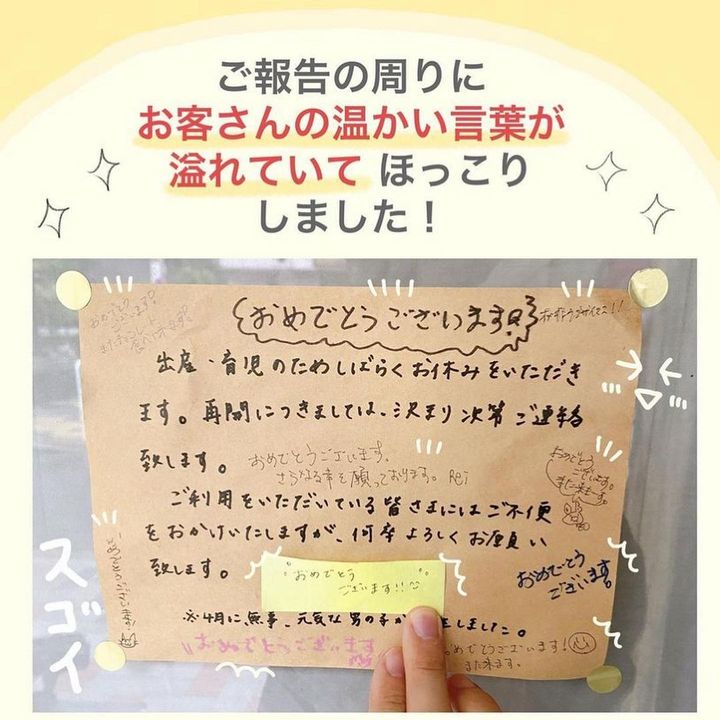 ご報告の周りに
お客さんの温かい言葉が
溢れていて ほっこり
しました！
おめでとうございます
出産・育児のためしばらくお休みをいただき
ます。再開につきましては、決まり次第ご連絡
致します。
おめでとうございます。
さらなる幸を願っております。Rei
おめでとう
ございます。
また来まーす。
ご利用をいただいている皆さまにはご不便
をおかけいたしますが、何卒よろしくお願い
致します。
おめでとう
ございます!!
おめでとう
ございます。
スゴイ
※4月に無事、元気な男の子が
しました。
おめでとうございます
おめでとうございます!
また来ます。